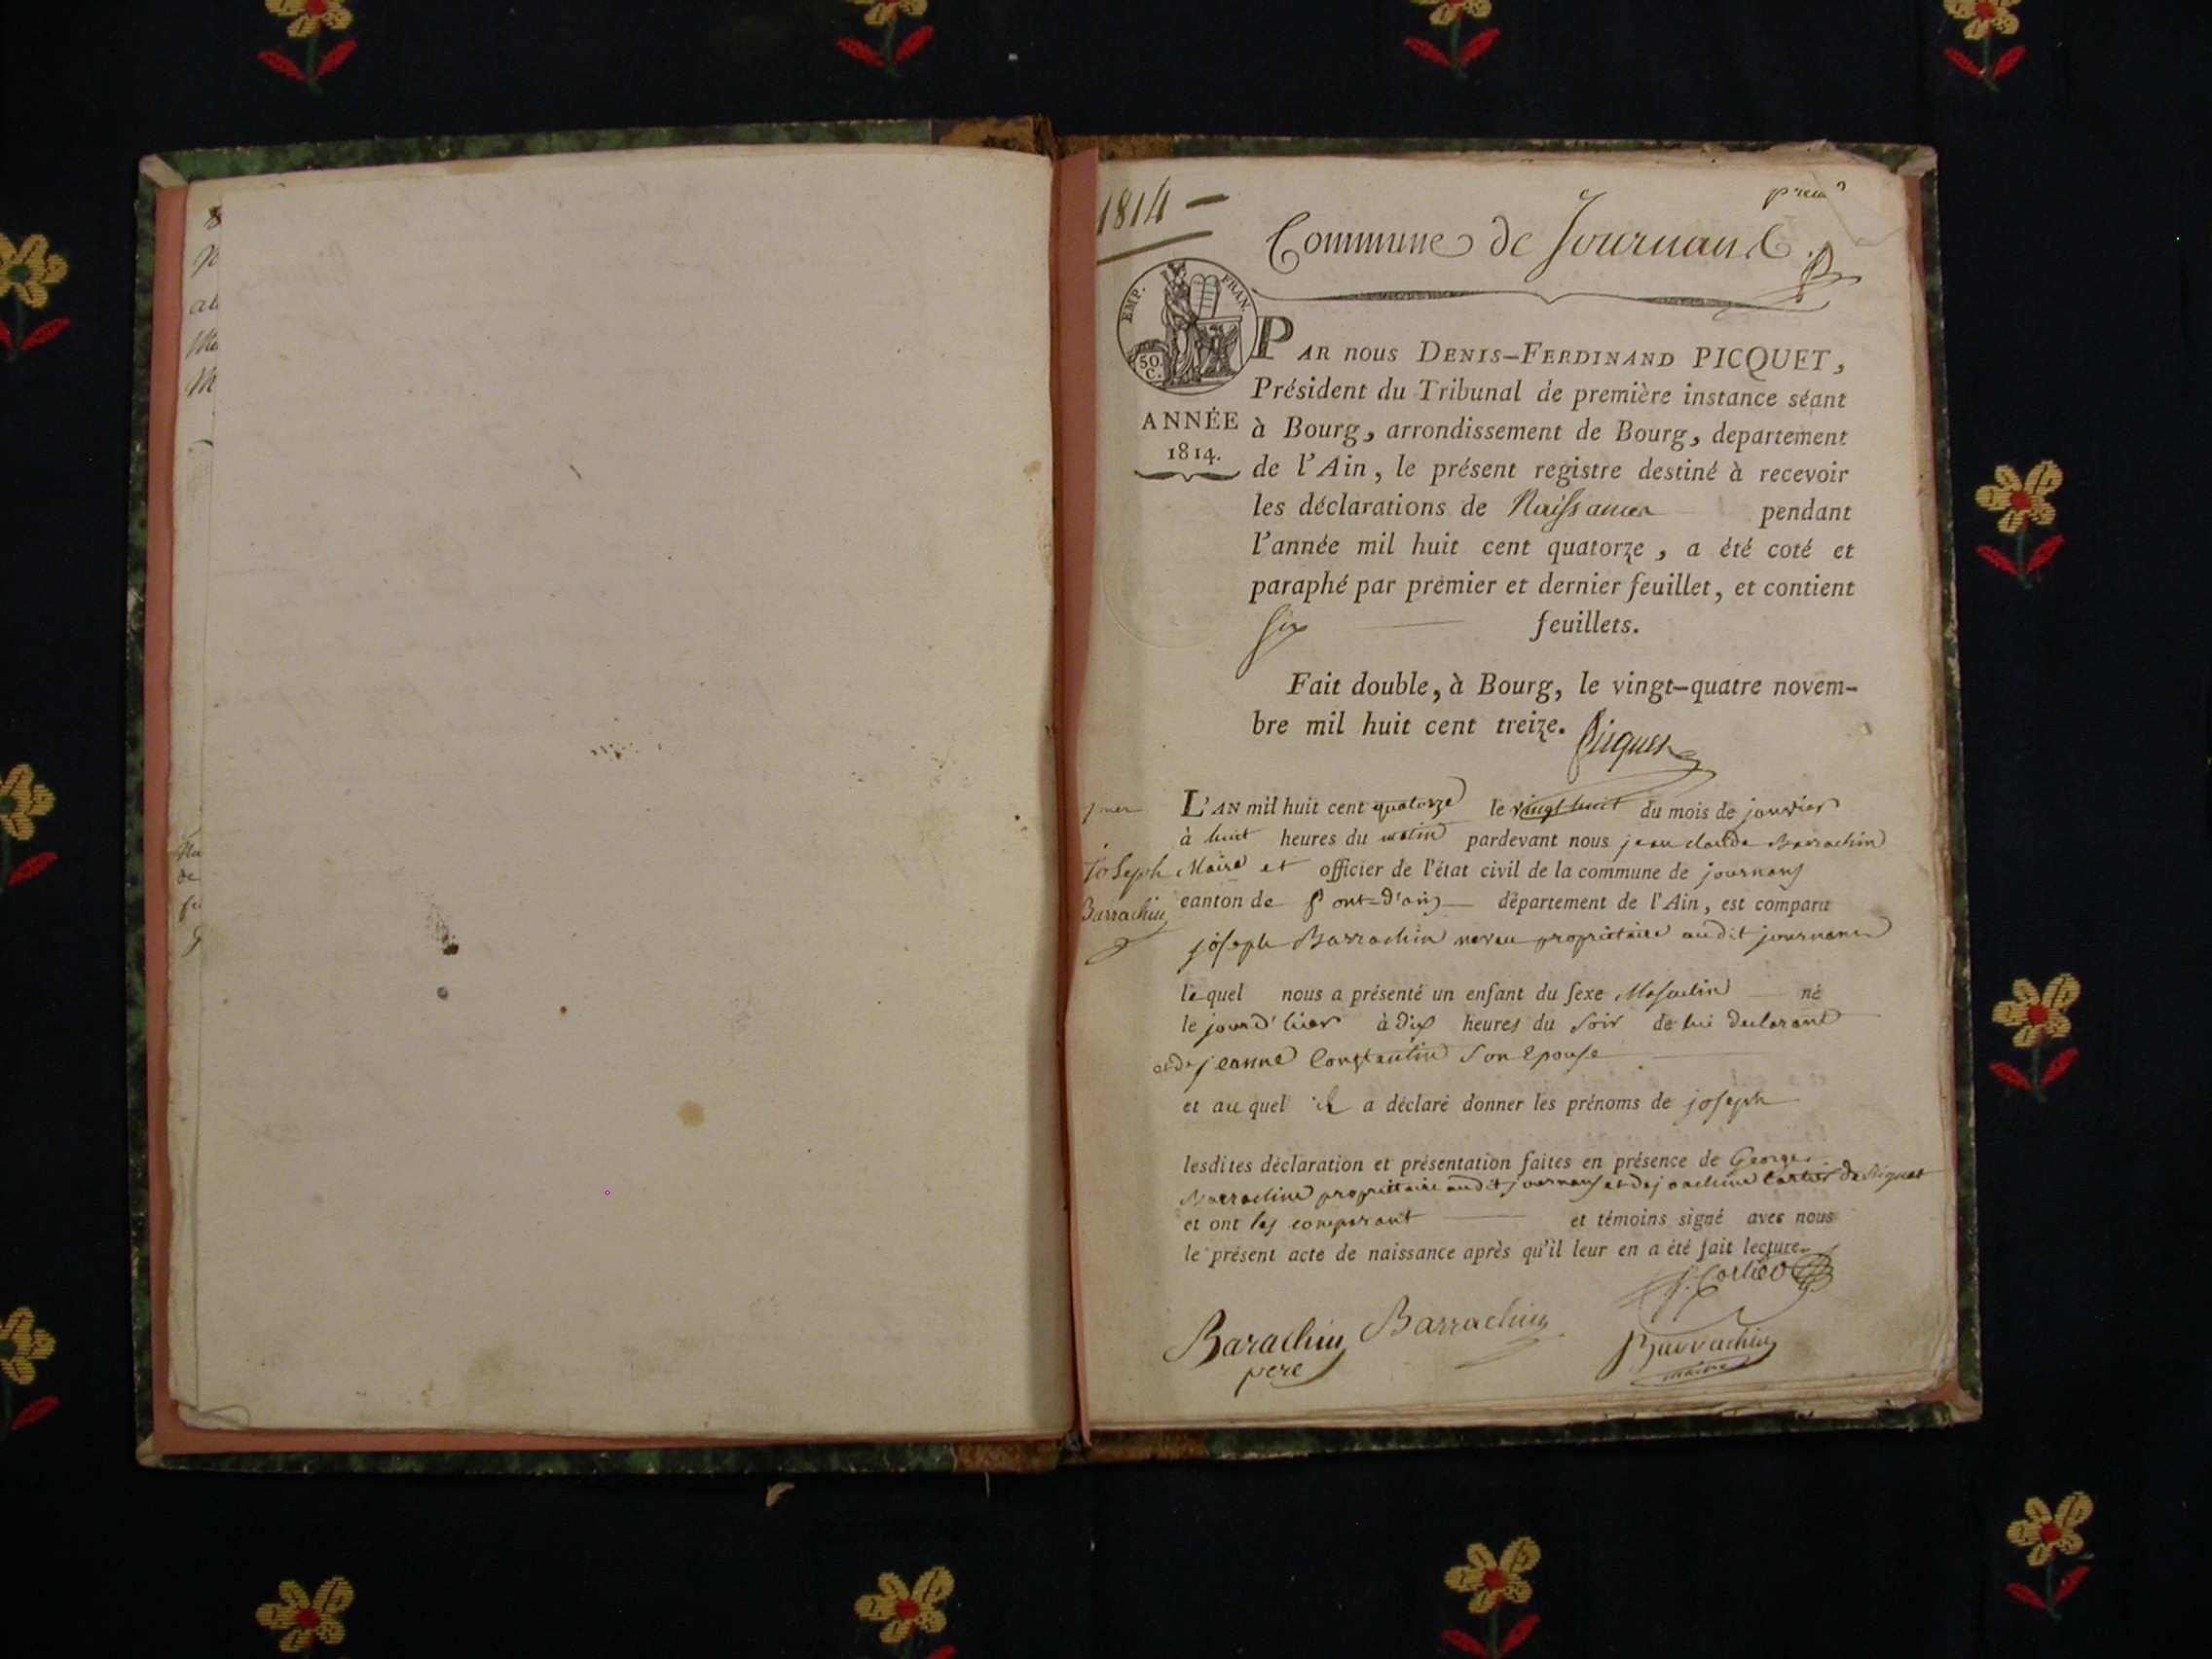 1814 —
Commune de Journans
EMP. FRAN.
50. C.
ANNÉE
1814.
PAR nous DENIS-FERDINAND PICQUET,
Président du Tribunal de première instance séant
à Bourg, arrondissement de Bourg, departement
de l'Ain, le présent registre destiné à recevoir
les déclarations de Naissances pendant
l'année mil huit cent quatorze, a été coté et
paraphé par premier et dernier feuillet, et contient
Six feuillets.
Fait double, à Bourg, le vingt-quatre novem-
bre mil huit cent treize.
Picquet
Joseph
Barrachin
L'AN mil huit cent quatorze le vingt huit du mois de janvier
à huit heures du matin pardevant nous jean claude Barrachin
Maire et officier de l'état civil de la commune de journans
canton de Pont-d'ain département de l'Ain, est comparu
joseph Barrachin neveu propriétaire audit journans
lequel nous a présenté un enfant du sexe Masculin né
le jour d'hier à dix heures du soir de lui declarant
et de jeanne Constantin son Epouse
et au quel il a déclaré donner les prénoms de joseph
lesdites déclaration et présentation faites en présence de George
Barrachin propriétaire audit journans et de joachim Cartier
et ont les comparant et témoins signé avec nous
le présent acte de naissance après qu'il leur en a été fait lecture.
j. Cartier
Barachin Barrachin
père
Barrachin
maire